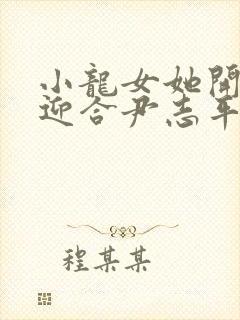 小龍女她開
迎合尹志平
程某某